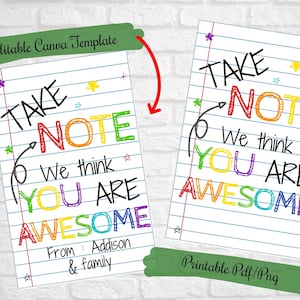 ditable Canva Template
TAKE
NOTE
We think
YOU ARE
AWESOME
From : Addison
& family
TAKE
NOT
We think
YOU AR
AWESOM
Printable Pdf/Png